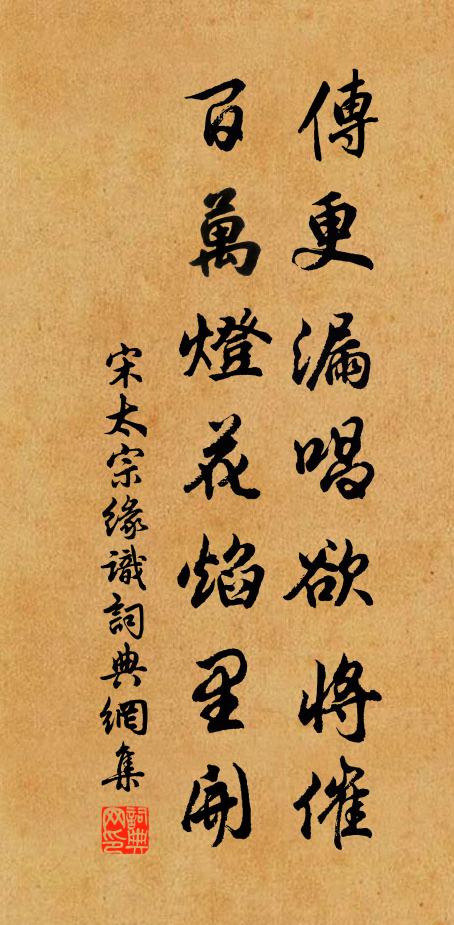 傳更漏唱欲將催
百萬燈花焰里開
宋太宗緣識詞典網集
詞典網印